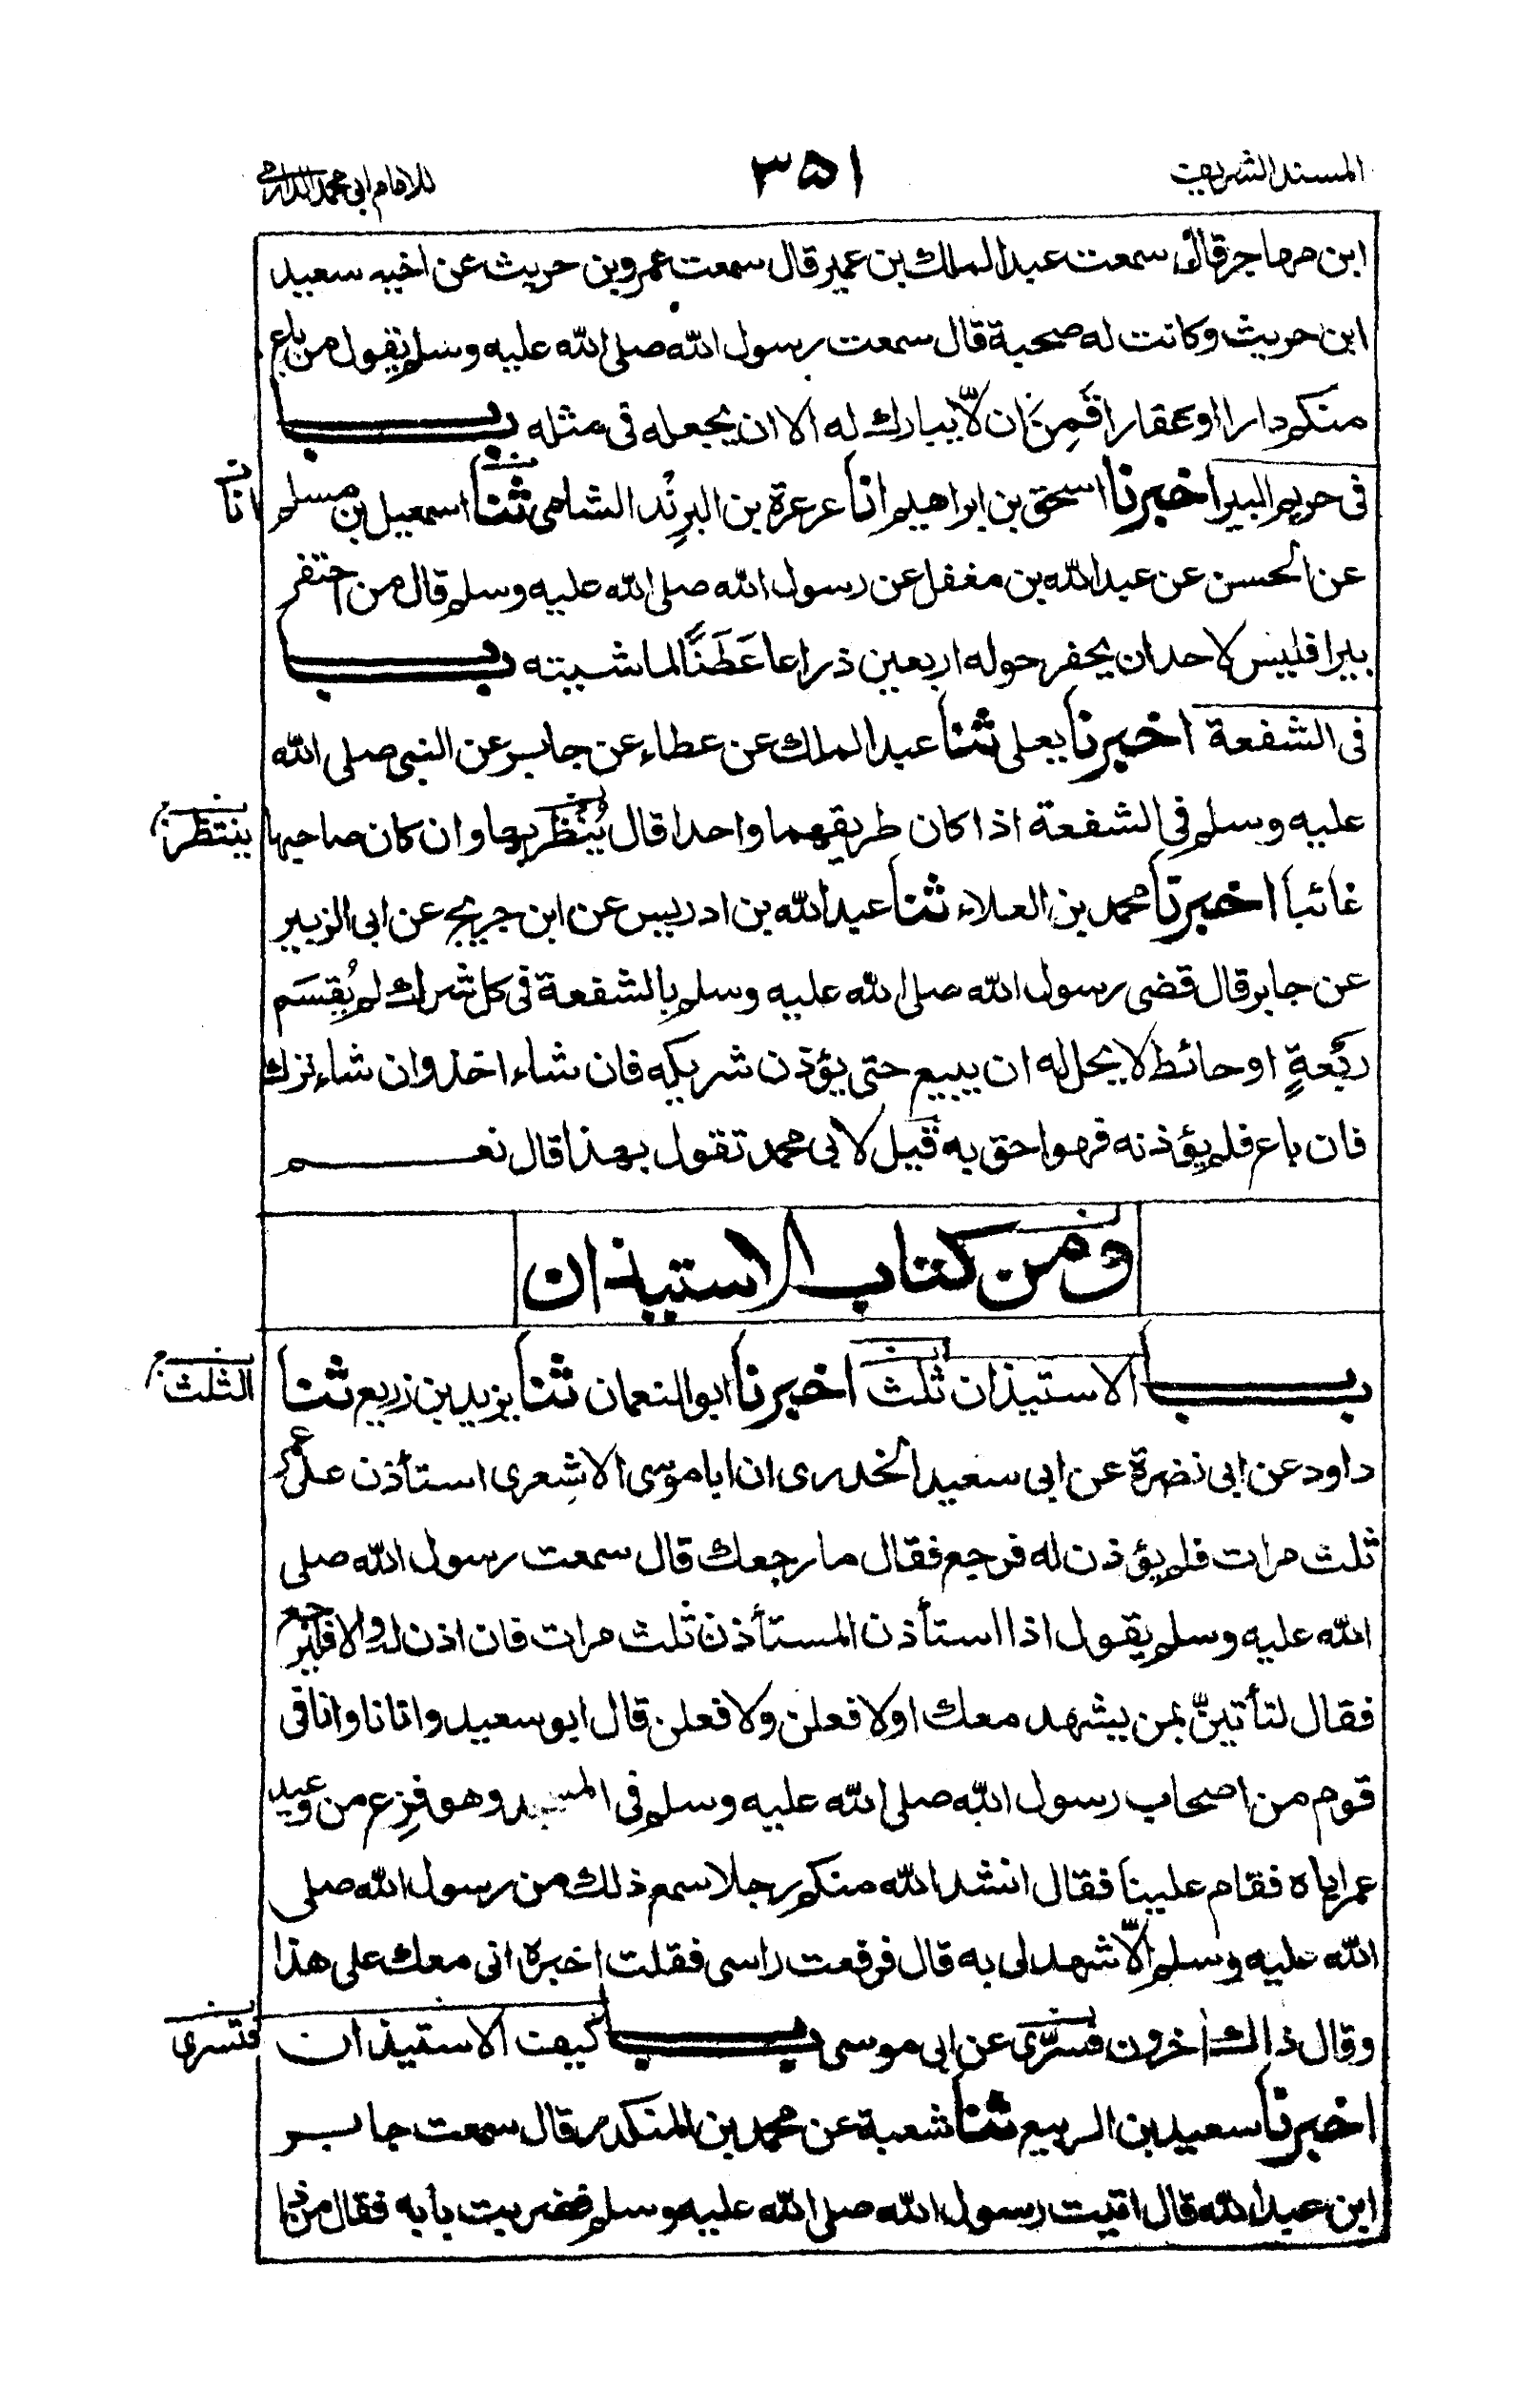 المسند الشريف
٣٥١
للامام ابى محمد الدارمى
ابن مهاجر قال سمعت عبد الملك بن عمير قال سمعت عمرو بن حريث عن اخيه سعيد
ابن حريث وكانت له صحبة قال سمعت رسول الله صلى الله عليه وسلم يقول من باع
منكم دارا او عقارا قَمِنٌ ان لّا يبارك له الا ان يجعله فى مثله بــاب
فى حريم البير اخبرنا اسحق بن ابراهيم انا عرعرة بن البرِنْد الشامى ثنا اسمعيل بن مسلم
انا
عن الحسن عن عبد الله بن مغفل عن رسول الله صلى الله عليه وسلم قال من احتفر
بيرا فليس لاحد ان يحفر حوله اربعين ذراعا عَطَنًا لماشيته بــاب
فى الشفعة اخبرنا يعلى ثنا عبد الملك عن عطاء عن جابر عن النبى صلى الله
عليه وسلم فى الشفعة اذا كان طريقهما واحدا قال يُنْظَر بها وان كان صاحبها
ينتظر
غائبا اخبرنا محمد بن العلاء ثنا عبد الله بن ادريس عن ابن جريج عن ابى الزبير
عن جابر قال قضى رسول الله صلى الله عليه وسلم بالشفعة فى كل شرك لم يُقسَم
ربْعةٍ او حائط لا يحل له ان يبيع حتى يؤذن شريكه فان شاء اخذ وان شاء ترك
فان باع فلم يؤذنه فهو احق به قيل لابى محمد تقول بهذا قال نعم
ومن كتاب الاستيذان
بــاب الاستيذان ثلث اخبرنا ابو النعمان ثنا يزيد بن زريع ثنا
الثلث
داود عن ابى نضرة عن ابى سعيد الخدرى ان ابا موسى الاشعرى استأذن على عمر
ثلث مرات فلم يؤذن له فرجع فقال ما رجعك قال سمعت رسول الله صلى
الله عليه وسلم يقول اذا استأذن المستأذن ثلث مرات فان اذن له والا فليرجع
فقال لتأتينّ بمن يشهد معك او لافعلن ولافعلن قال ابو سعيد واتانا وانا فى
قوم من اصحاب رسول الله صلى الله عليه وسلم فى المسجد وهو فزِع من وعيد
عمر اياه فقام علينا فقال انشد الله منكم رجلا سمع ذلك من رسول الله صلى
الله عليه وسلم الّا شهد لى به قال فرفعت راسى فقلت اخبره انى معك على هذا
وقال ذالك اخرون فسرّى عن ابى موسى بــاب كيف الاستيذان
فتسرى
اخبرنا سعيد بن الربيع ثنا شعبة عن محمد بن المنكدر قال سمعت جابر
ابن عبد الله قال اتيت رسول الله صلى الله عليه وسلم فضربت بابه فقال من ذا